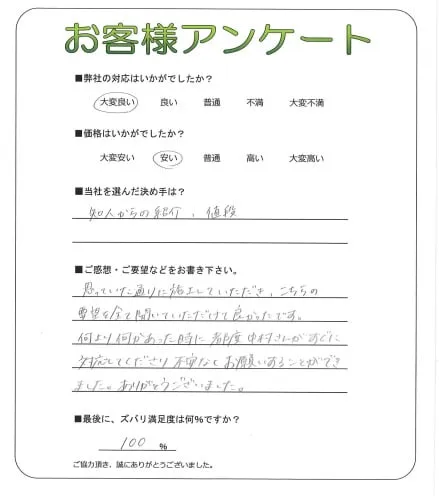 お客様アンケート
■弊社の対応はいかがでしたか？
大変良い 良い 普通 不満 大変不満
■価格はいかがでしたか？
大変安い 安い 普通 高い 大変高い
■当社を選んだ決め手は？
知人からの紹介、値段
■ご感想・ご要望などをお書き下さい。
思っていた通りに施工していただき、こちらの
要望を全て聞いていただけて良かったです。
何より何かあった時に都度中村さんがすぐに
対応してくださり不安なくお願いすることができ
ました。ありがとうございました。
■最後に、ズバリ満足度は何％ですか？
100 %
ご協力頂き、誠にありがとうございました。